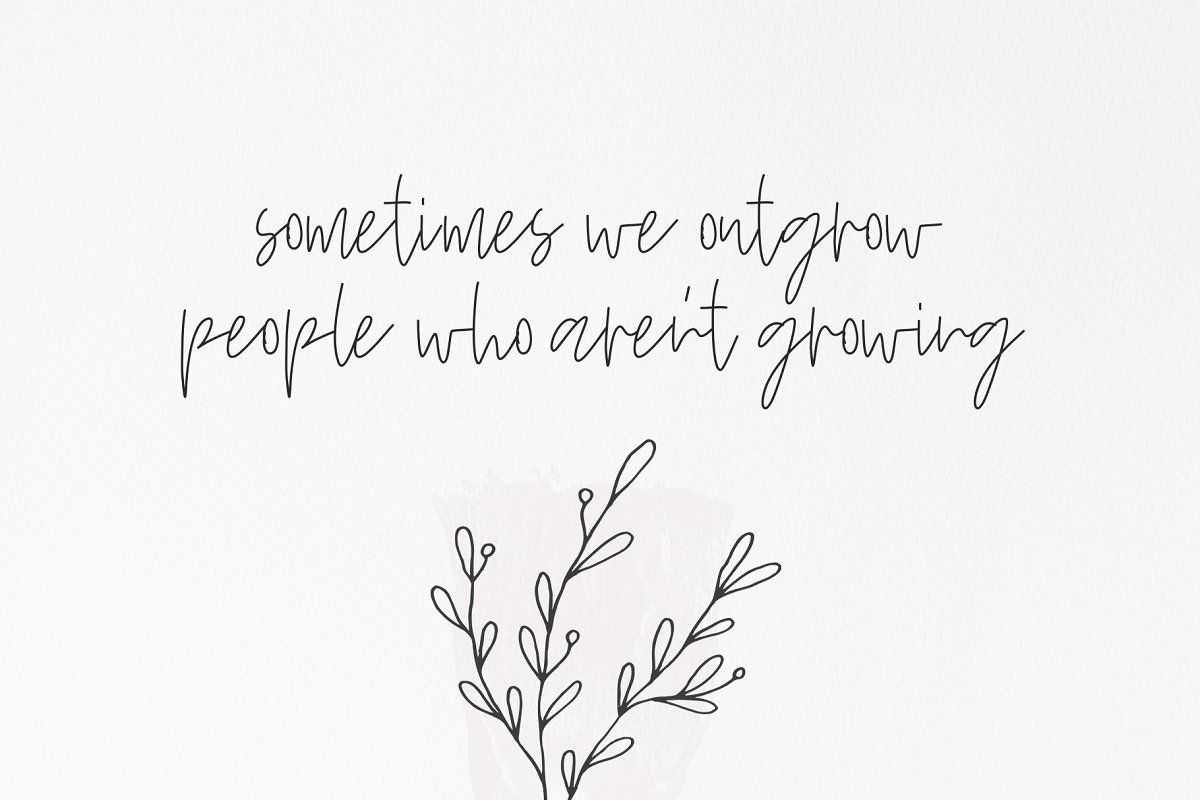 sometimes we outgrow
people who aren't growing